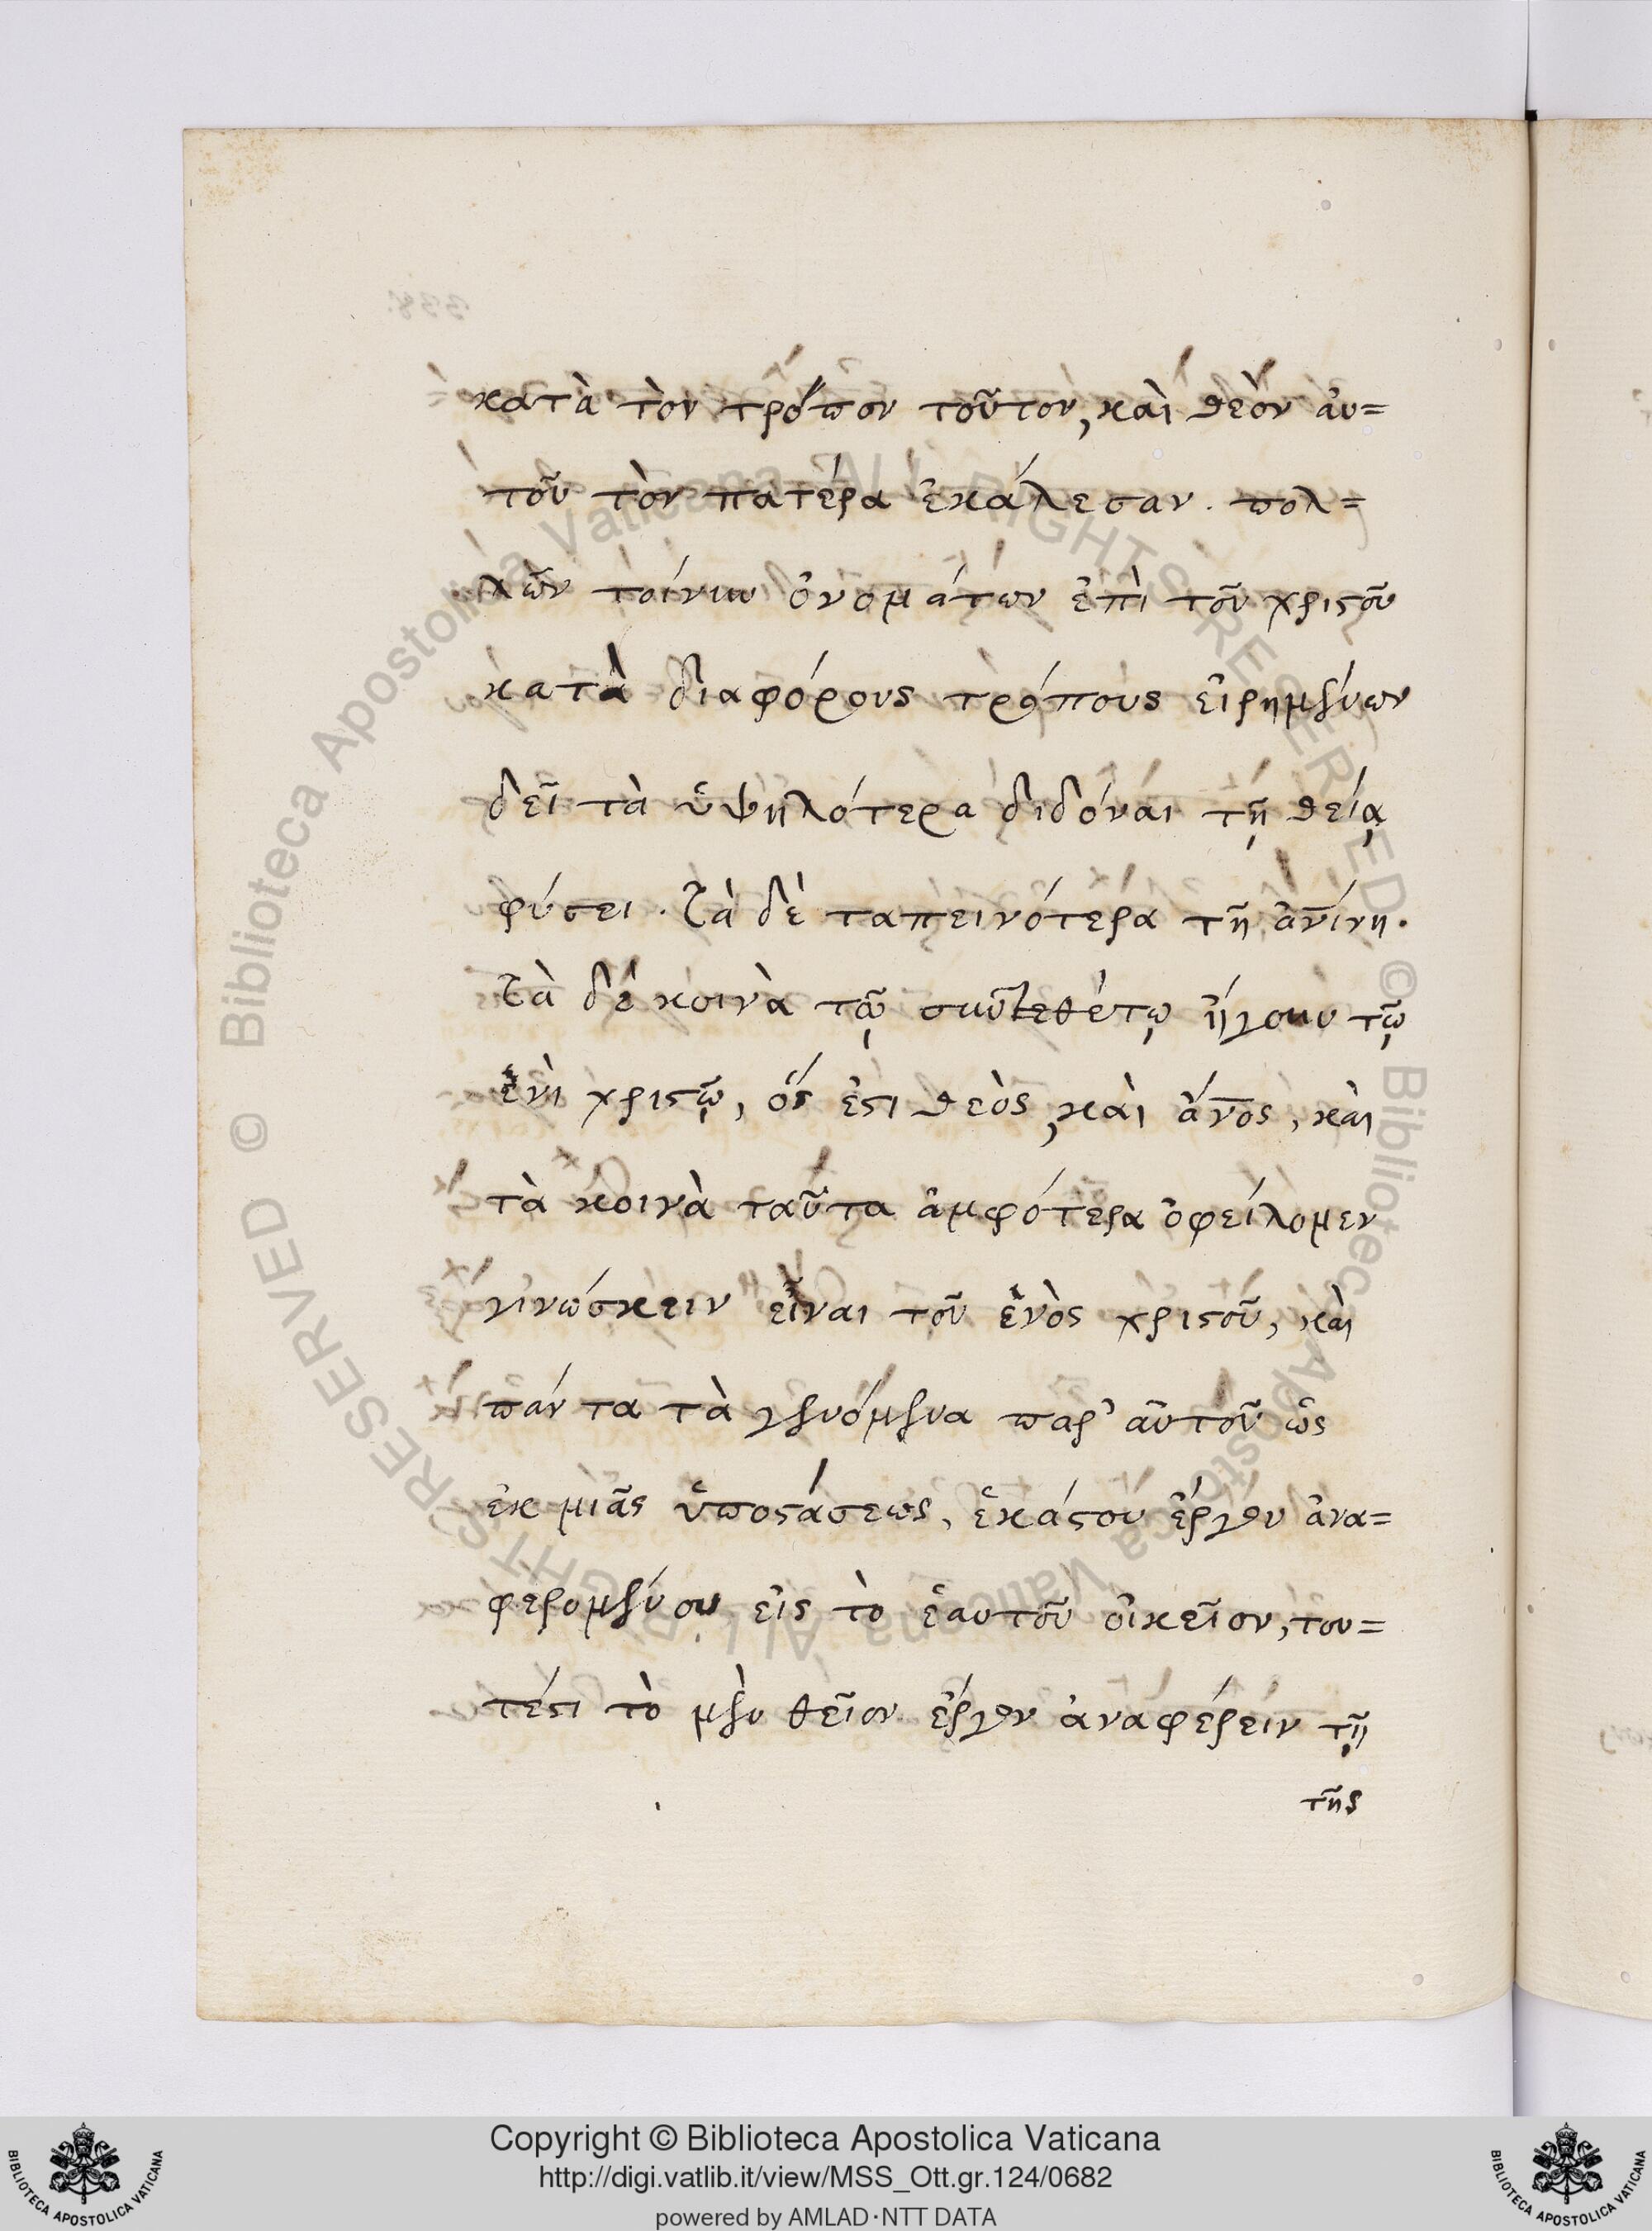 κατὰ τὸν τρόπον τοῦτον, καὶ θεὸν ἀυ=
τοῦ τὸν πατέρα ἐκάλεσαν. πολ=
λῶν τοίνυν ὀνομάτων ἐπὶ τοῦ χριϛοῦ
κατὰ διαφόρους τρόπους εἰρημένων
δεῖ τὰ ὑψηλότερα διδόναι τῇ θείᾳ
φύσει. τὰ δὲ ταπεινότερα τῆ ἀνίνη.
τὰ δὲ κοινὰ τῷ συντεθέτῳ ἤγουν τῷ
ἑνὶ χριϛῷ, ὅς ἐϛι θεὸς, καὶ ἄνος, καὶ
τὰ κοινὰ ταῦτα ἀμφότερα ὀφείλομεν
γινώσκειν εἶναι τοῦ ἑνὸς χριϛοῦ, καὶ
πάντα τὰ γενόμενα παρ' αὐτοῦ ὡς
ἐκ μιᾶς ὑποϛάσεως, ἑκάϛου ἔργου ἀνα=
φερομένου εἰς τὸ ἑαυτοῦ οἰκεῖον, του=
τέϛι τὸ μὲν θεῖον ἔργον ἀναφέρειν τῇ
τῆς
Copyright © Biblioteca Apostolica Vaticana
http://digi.vatlib.it/view/MSS_Ott.gr.124/0682
powered by AMLAD·NTT DATA
BIBLIOTECA APOSTOLICA VATICANA
BIBLIOTECA APOSTOLICA VATICANA
© Biblioteca Apostolica Vaticana ALL RIGHTS RESERVED
© Biblioteca Apostolica Vaticana ALL RIGHTS RESERVED